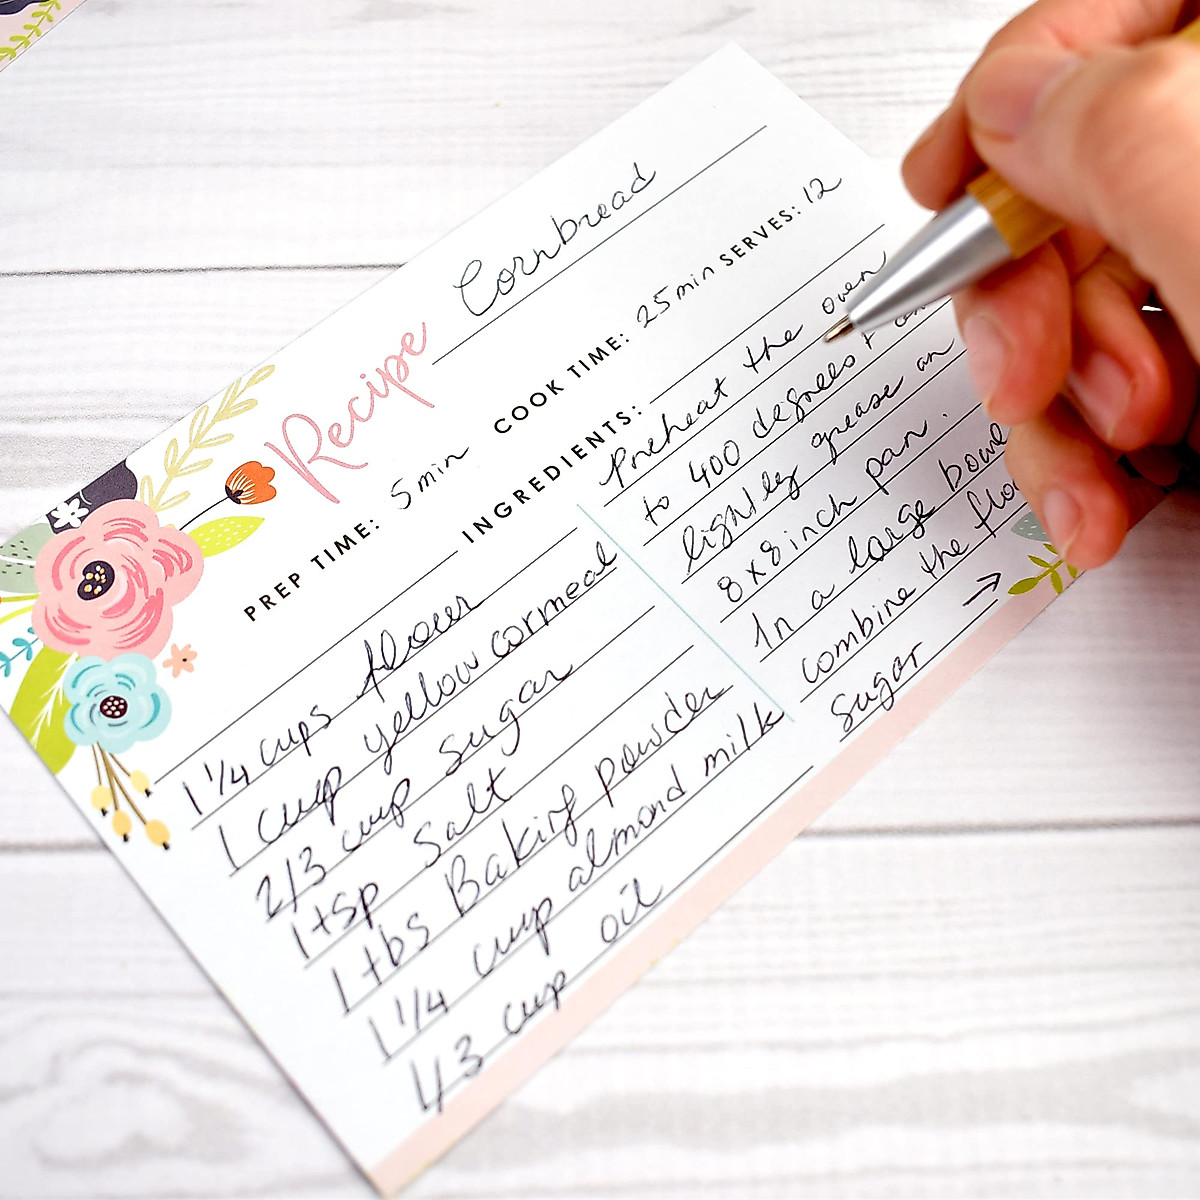 Recipe Cornbread
PREP TIME: 5 min COOK TIME: 25 min SERVES: 12
INGREDIENTS:
1 1/4 cups flour
1 cup yellow cormeal
2/3 cup sugar
1 tsp Salt
1 tbs Baking powder
1 1/4 cup almond milk
1/3 cup oil
Preheat the oven
to 400 degrees +
lightly grease an
8x8 inch pan.
In a large bowl
combine the
sugar →